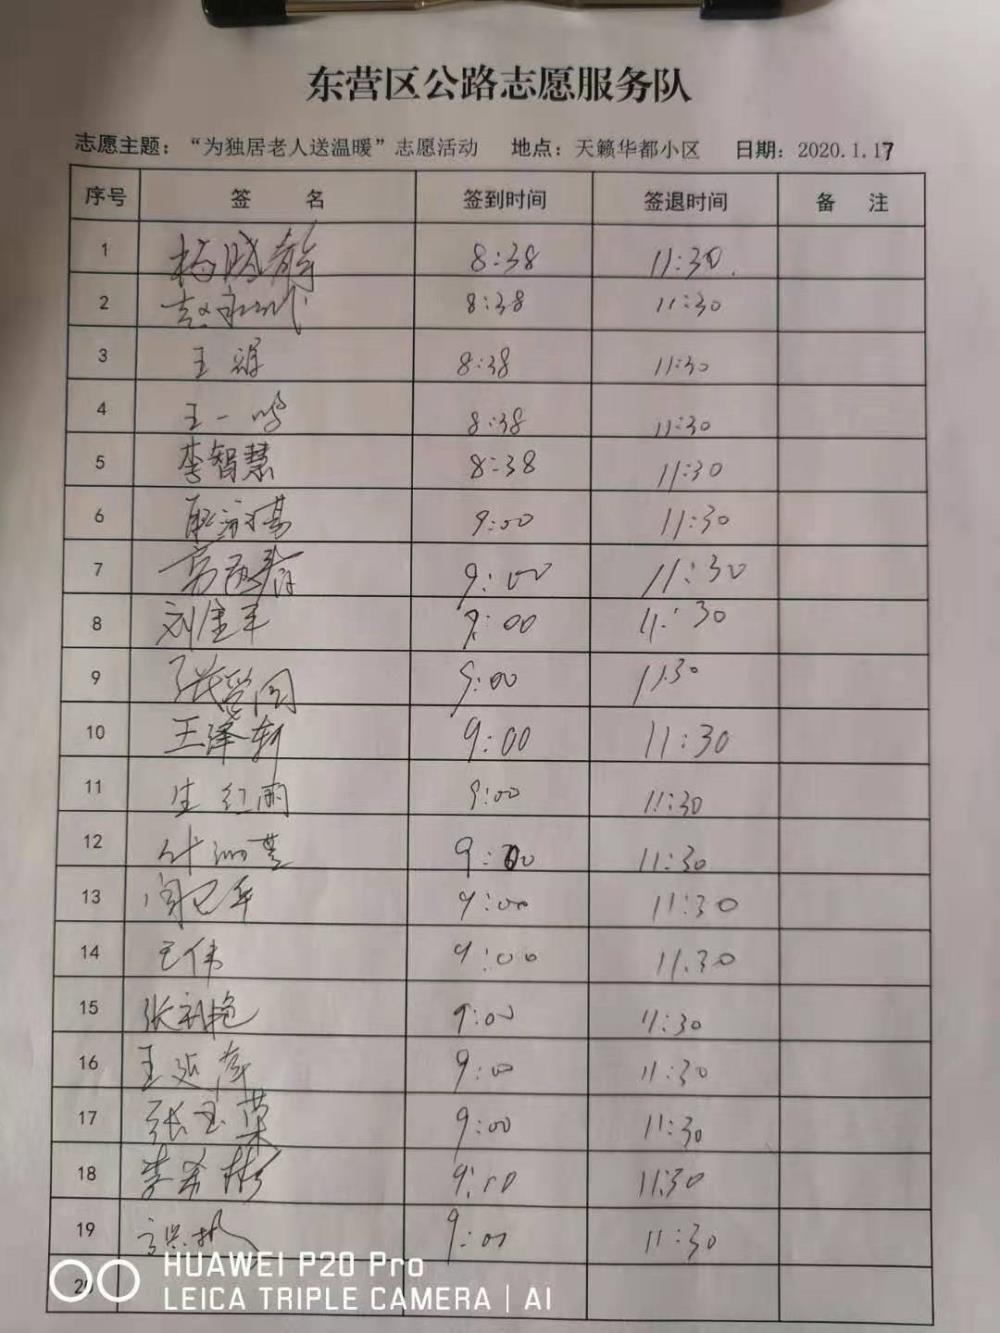 东营区公路志愿服务队
志愿主题：“为独居老人送温暖”志愿活动 地点：天籁华都小区 日期：2020.1.17
序号 签 名 签到时间 签退时间 备 注
1 杨晓静 8:38 11:30.
2 8:38 11:30
3 王 8:38 11:30
4 王一鸣 8:38 11:30
5 李智慧 8:38 11:30
6 9:00 11:30
7 9:00 11:30
8 刘金军 9:00 11:30
9 张 9:00 11:30
10 王泽轩 9:00 11:30
11 生红雨 9:00 11:30
12 9:00 11:30
13 9:00 11:30
14 王伟 9:00 11.30
15 张 艳 9:00 11:30
16 王延 9:00 11:30
17 张玉荣 9:00 11:30
18 李希彬 9:10 11:30
19 9:00 11:30
20
HUAWEI P20 Pro
LEICA TRIPLE CAMERA | AI